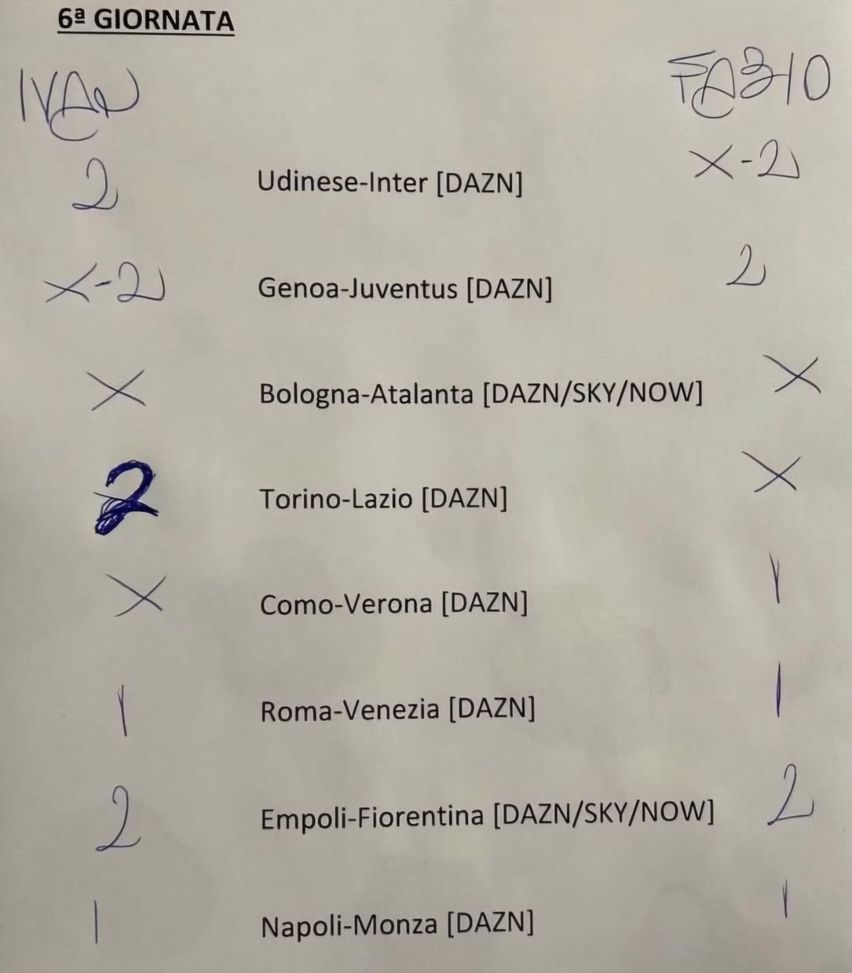 6ª GIORNATA
IVAN FABIO
2 Udinese-Inter [DAZN] X-2
X-2 Genoa-Juventus [DAZN] 2
X Bologna-Atalanta [DAZN/SKY/NOW] X
2 Torino-Lazio [DAZN] X
X Como-Verona [DAZN] 1
1 Roma-Venezia [DAZN] 1
2 Empoli-Fiorentina [DAZN/SKY/NOW] 2
1 Napoli-Monza [DAZN] 1